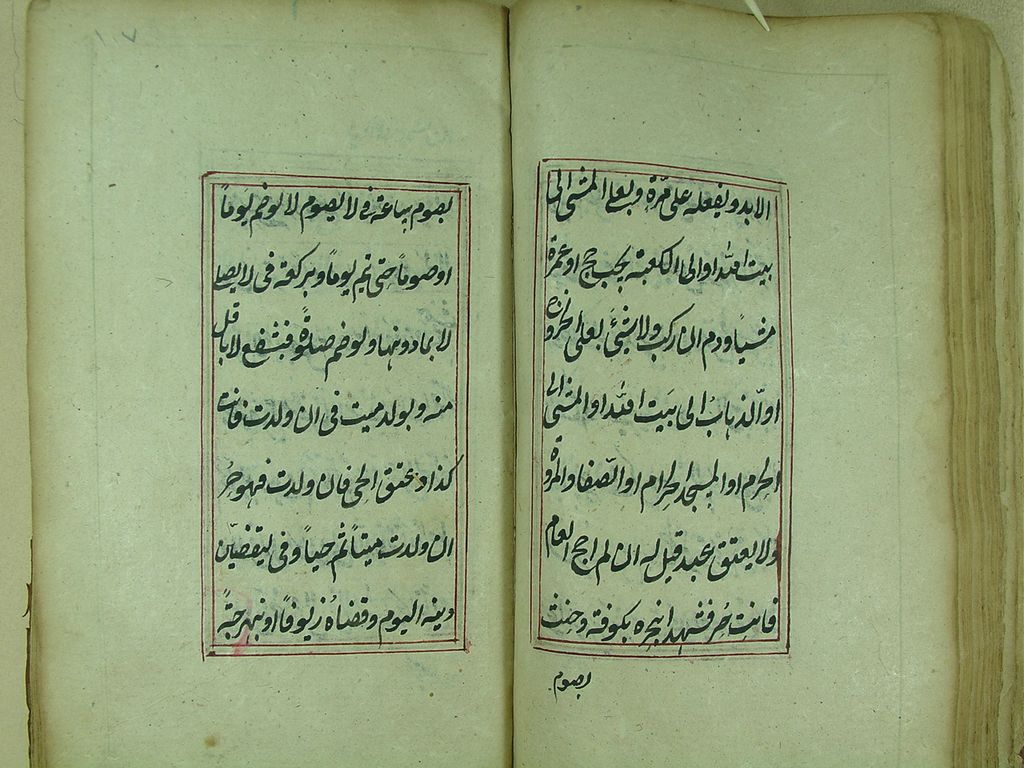 الابد ويفعله على مرة وبعلى المشى الى
بيت الله او الى الكعبة يجب حج او عمرة
مشياً ودم ان ركب ولا شئ بعلى الخروج
او الذهاب الى بيت الله او المشى الى
الحرم او المسجد الحرام او الصفا والمروة
ولا يعتق عبد قيل له ان لم احج العام
فانت حر فشهد بنحره بكوفة وحنث
بصوم
١٠٧
بصوم بساعة فى لا يصوم لا لو ضم يوماً
او صوماً حتى تم يوماً وبركعة فى لا يصلى
لا بما دونها ولو ضم صلوة فبشفع لا باقل
منه وبولد ميت فى ان ولدت فانت
كذا وعتق الحى فان ولدت فهو حُر
ان ولدت ميتاً ثم حياً وفى ليقضين
دينه اليوم وقضاه زيوفاً او نبهرجةً